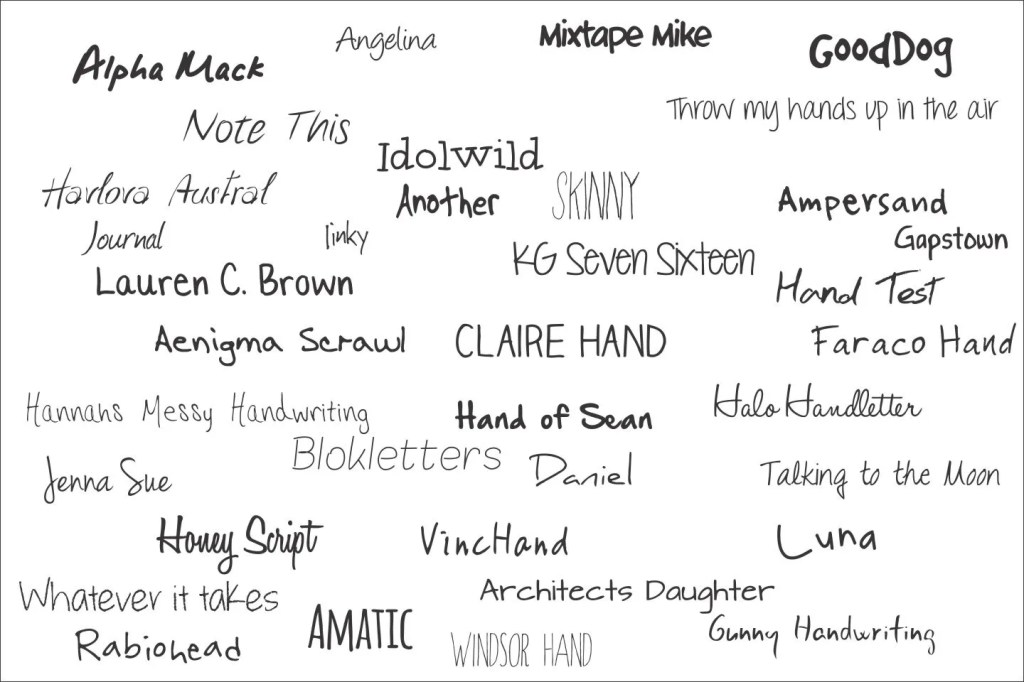 Angelina
Mixtape Mike
GoodDog
Alpha Mack
Throw my hands up in the air
Note This
Idolwild
Havlova Austral
Another
SKINNY
Ampersand
Journal
Tinky
Gapstown
KG Seven Sixteen
Lauren C. Brown
Hand Test
Aenigma Scrawl
CLAIRE HAND
Faraco Hand
Hannahs Messy Handwriting
Hand of Sean
Halo Handletter
Blokletters
Jenna Sue
Daniel
Talking to the Moon
Honey Script
VincHand
Luna
Whatever it takes
Architects Daughter
AMATIC
Rabiohead
WINDSOR HAND
Gunny Handwriting